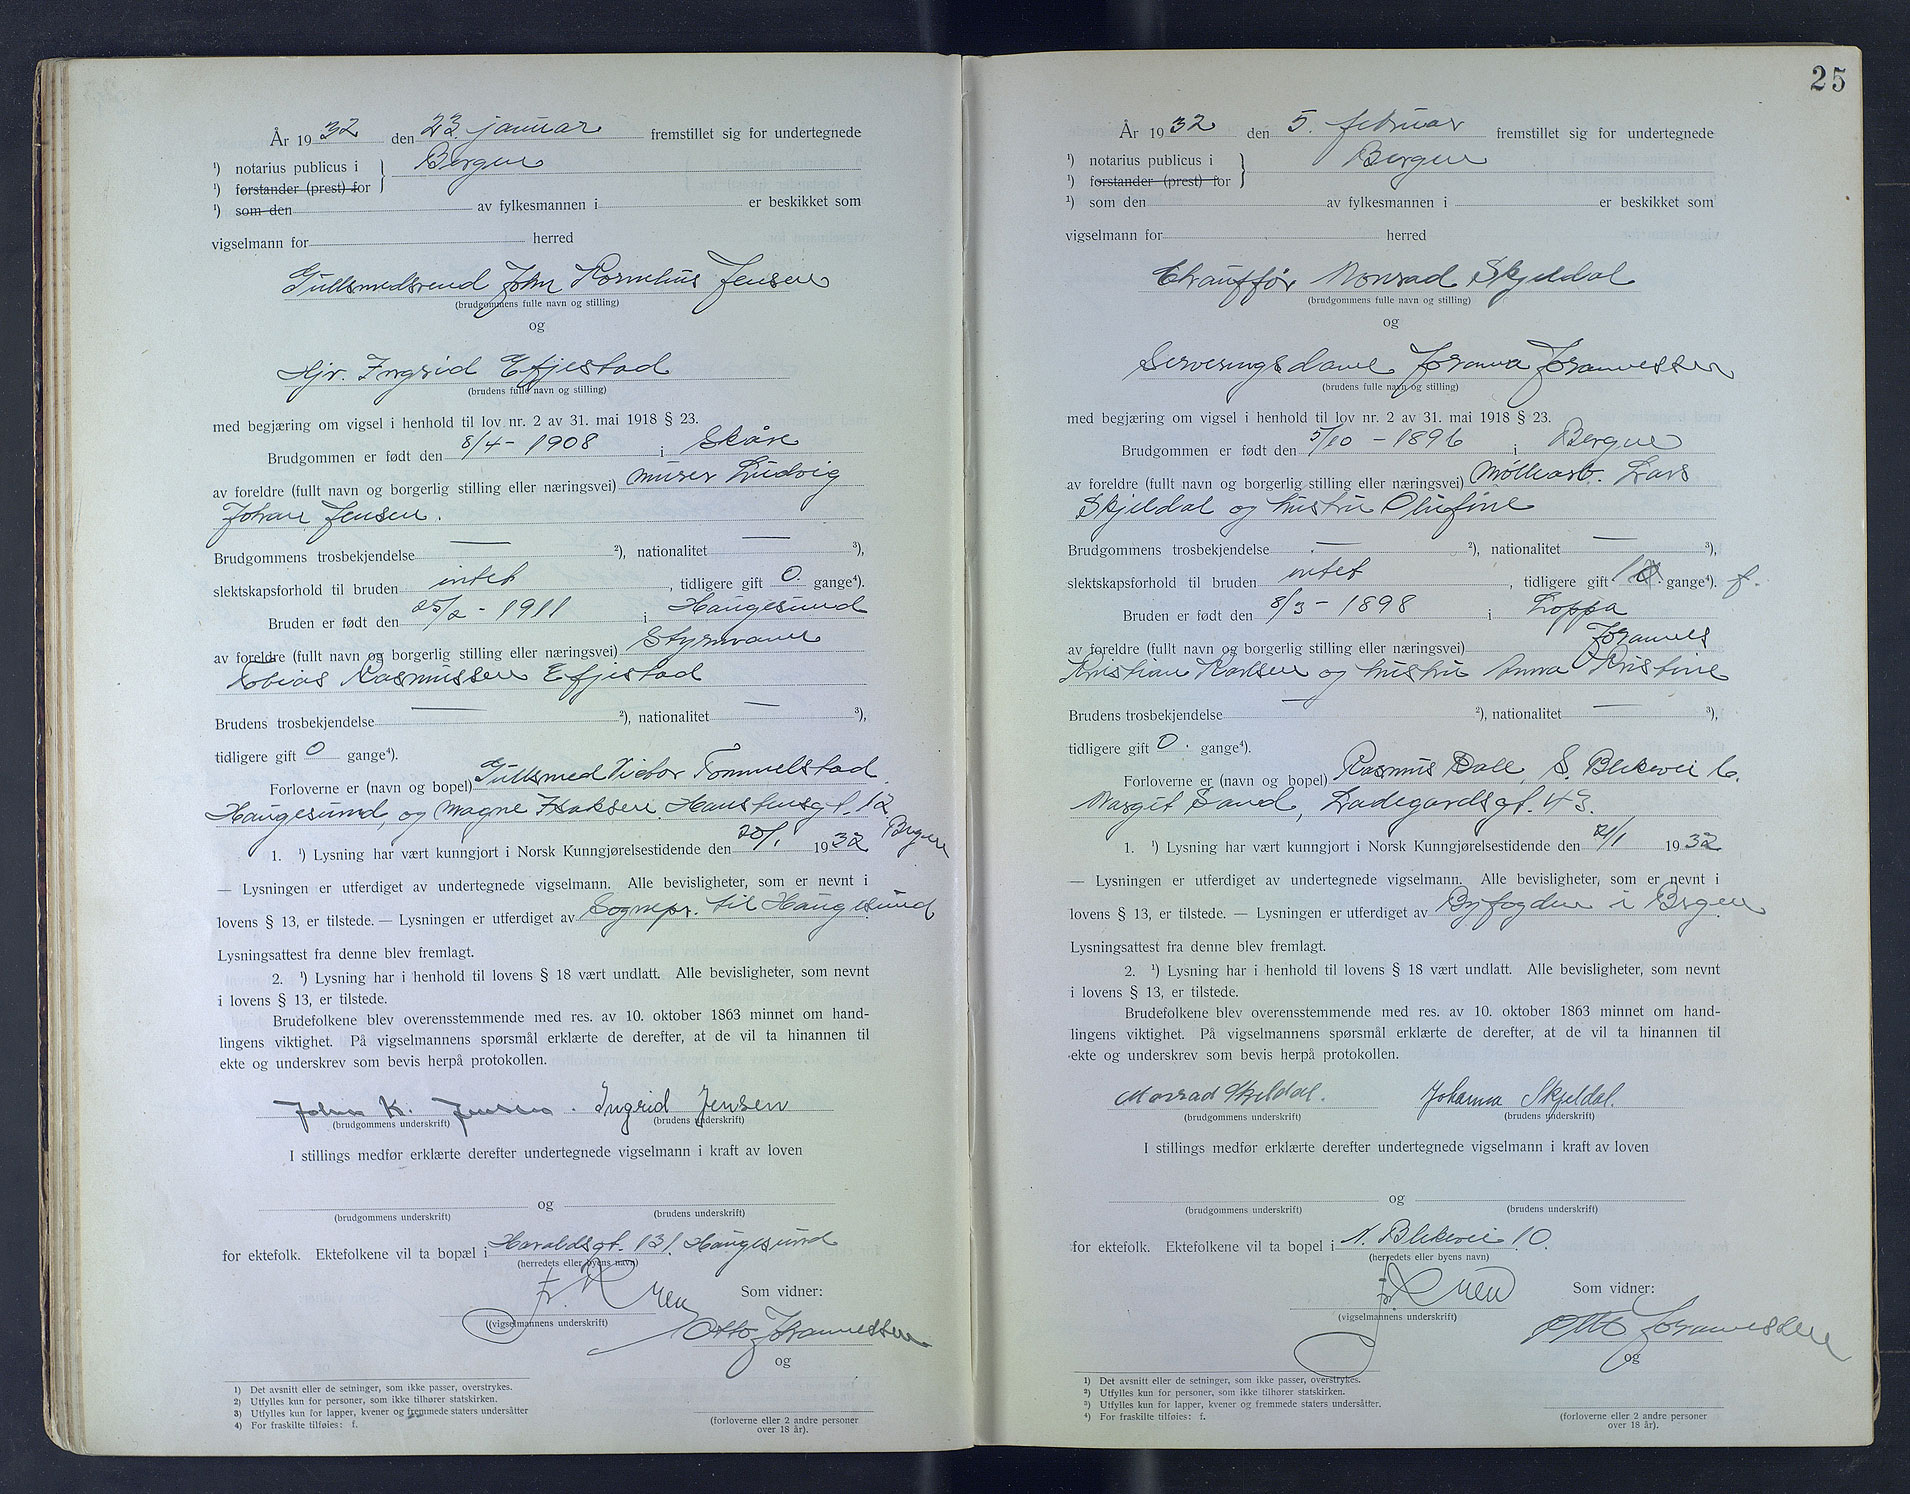 År 1932 den 23. januar fremstillet sig for undertegnede
¹) notarius publicus i } Bergen
¹) forstander (prest) for
¹) som den av fylkesmannen i er beskikket som
vigselmann for herred
Gullsmedsvend John Kornelius Jensen
(brudgommens fulle navn og stilling)
og
Hjv. Ingrid Efjestad
(brudens fulle navn og stilling)
med begjæring om vigsel i henhold til lov nr. 2 av 31. mai 1918 § 23.
Brudgommen er født den 8/4 - 1908 i Skåre
av foreldre (fullt navn og borgerlig stilling eller næringsvei) murer Ludvig
Johan Jensen.
Brudgommens trosbekjendelse — ²), nationalitet — ³),
slektskapsforhold til bruden intet, tidligere gift 0 gange⁴).
Bruden er født den 25/2 - 1911 i Haugesund
av foreldre (fullt navn og borgerlig stilling eller næringsvei) Styrmann
Tobias Rasmussen Efjestad
Brudens trosbekjendelse — ²), nationalitet — ³),
tidligere gift 0 gange⁴).
Forloverne er (navn og bopel) Gullsmed Victor Tommelstad
Haugesund, og Magne Isaksen, Haustensgt. 12 Bergen
1. ¹) Lysning har vært kunngjort i Norsk Kunngjørelsestidende den 20/1 1932
— Lysningen er utferdiget av undertegnede vigselmann. Alle bevisligheter, som er nevnt i
lovens § 13, er tilstede. — Lysningen er utferdiget av Sognepr. til Haugesund
Lysningsattest fra denne blev fremlagt.
2. ¹) Lysning har i henhold til lovens § 18 vært undlatt. Alle bevisligheter, som nevnt
i lovens § 13, er tilstede.
Brudefolkene blev overensstemmende med res. av 10. oktober 1863 minnet om hand-
lingens viktighet. På vigselmannens spørsmål erklærte de derefter, at de vil ta hinannen til
ekte og underskrev som bevis herpå protokollen.
John K. Jensen. Ingrid Jensen
(brudgommens underskrift) (brudens underskrift)
I stillings medfør erklærte derefter undertegnede vigselmann i kraft av loven
og
(brudgommens underskrift) (brudens underskrift)
for ektefolk. Ektefolkene vil ta bopæl i Haraldsgt. 131. Haugesund
(herredets eller byens navn)
Som vidner:
(vigselmannens underskrift)
Otto Johannessen
og
(forloverne eller 2 andre personer
over 18 år).
1) Det avsnitt eller de setninger, som ikke passer, overstrykes.
2) Utfylles kun for personer, som ikke tilhører statskirken.
3) Utfylles kun for lapper, kvener og fremmede staters undersåtter
4) For fraskilte tilføies: f.
25
År 1932 den 5. februar fremstillet sig for undertegnede
¹) notarius publicus i } Bergen
¹) forstander (prest) for
¹) som den av fylkesmannen i er beskikket som
vigselmann for herred
Chauffør Monrad Skjeldal
(brudgommens fulle navn og stilling)
og
Serveringsdame Johanna Johannessen
(brudens fulle navn og stilling)
med begjæring om vigsel i henhold til lov nr. 2 av 31. mai 1918 § 23.
Brudgommen er født den 5/10 - 1896 i Bergen
av foreldre (fullt navn og borgerlig stilling eller næringsvei) Møllearb. Lars
Skjeldal og hustru Olufine
Brudgommens trosbekjendelse — ²), nationalitet — ³),
slektskapsforhold til bruden intet, tidligere gift 1 0. gange⁴). f.
Bruden er født den 8/3 - 1898 i Loppa
av foreldre (fullt navn og borgerlig stilling eller næringsvei) Johannes
Kristian Karlsen og hustru Anna Kristine
Brudens trosbekjendelse — ²), nationalitet — ³),
tidligere gift 0. gange⁴).
Forloverne er (navn og bopel) Rasmus Dale, S. Blekevei 6.
Margit Sand, Ladegårdsgt. 43.
1. ¹) Lysning har vært kunngjort i Norsk Kunngjørelsestidende den 21/1 1932
— Lysningen er utferdiget av undertegnede vigselmann. Alle bevisligheter, som er nevnt i
lovens § 13, er tilstede. — Lysningen er utferdiget av Byfogden i Bergen
Lysningsattest fra denne blev fremlagt.
2. ¹) Lysning har i henhold til lovens § 18 vært undlatt. Alle bevisligheter, som nevnt
i lovens § 13, er tilstede.
Brudefolkene blev overensstemmende med res. av 10. oktober 1863 minnet om hand-
lingens viktighet. På vigselmannens spørsmål erklærte de derefter, at de vil ta hinannen til
ekte og underskrev som bevis herpå protokollen.
Monrad Skjeldal. Johanna Skjeldal.
(brudgommens underskrift) (brudens underskrift)
I stillings medfør erklærte derefter undertegnede vigselmann i kraft av loven
og
(brudgommens underskrift) (brudens underskrift)
for ektefolk. Ektefolkene vil ta bopel i N. Blekevei 10.
(herredets eller byens navn)
Som vidner:
(vigselmannens underskrift)
Otto Johannessen
og
(forloverne eller 2 andre personer
over 18 år).
¹) Det avsnitt eller de setninger, som ikke passer, overstrykes.
²) Utfylles kun for personer, som ikke tilhører statskirken.
³) Utfylles kun for lapper, kvener og fremmede staters undersåtter.
⁴) For fraskilte tilføies: f.